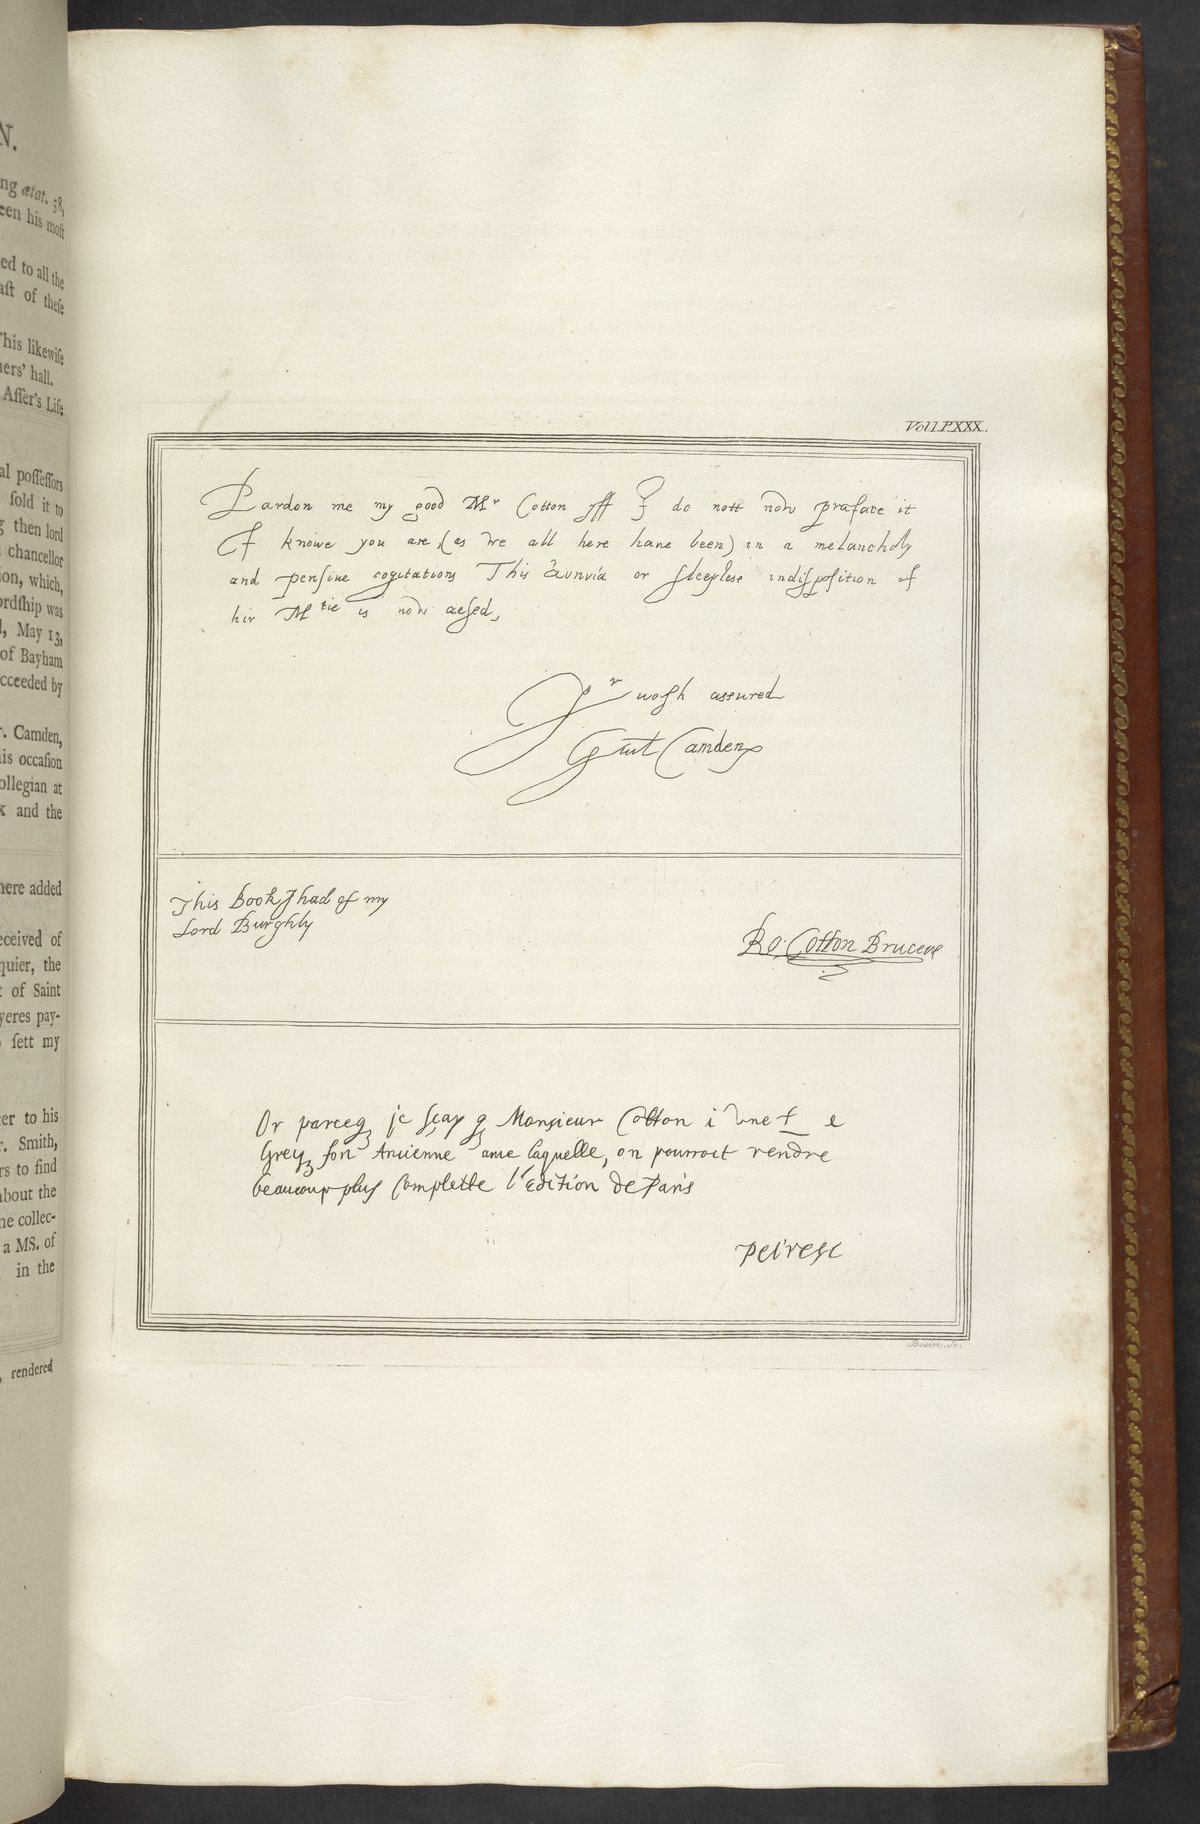 N.
ng ætat. 58,
een his moſt
ed to all the
aſt of theſe
This likewiſe
ners' hall.
Aſſer's Life
al poſſeſſors
ſold it to
g then lord
chancellor
ion, which,
ordſhip was
l, May 13,
of Bayham
cceeded by
r. Camden,
his occaſion
ollegian at
x and the
here added
eceived of
quier, the
t of Saint
yeres pay-
ſett my
ter to his
r. Smith,
rs to find
about the
ne collec-
a MS. of
in the
, rendered
Vol I P.XXX.
Pardon me my good Mr Cotton yff I do nott now præface it
I knowe you are (as we all here haue been) in a melancholy
and penſiue cogitations This or ſleepleſe indiſpoſition of
hir Mtie is now
Yr assured
Camden
This book I had of my
Lord Burghly
Ro: Cotton Bruceus
Or parceq je ſçay q Monsieur Cotton vne
fort Ancienne auec laquelle, on pourroit rendre
beaucoup pluſ Complette l'Edition de Paris
Peireſc
Basire. Sc.